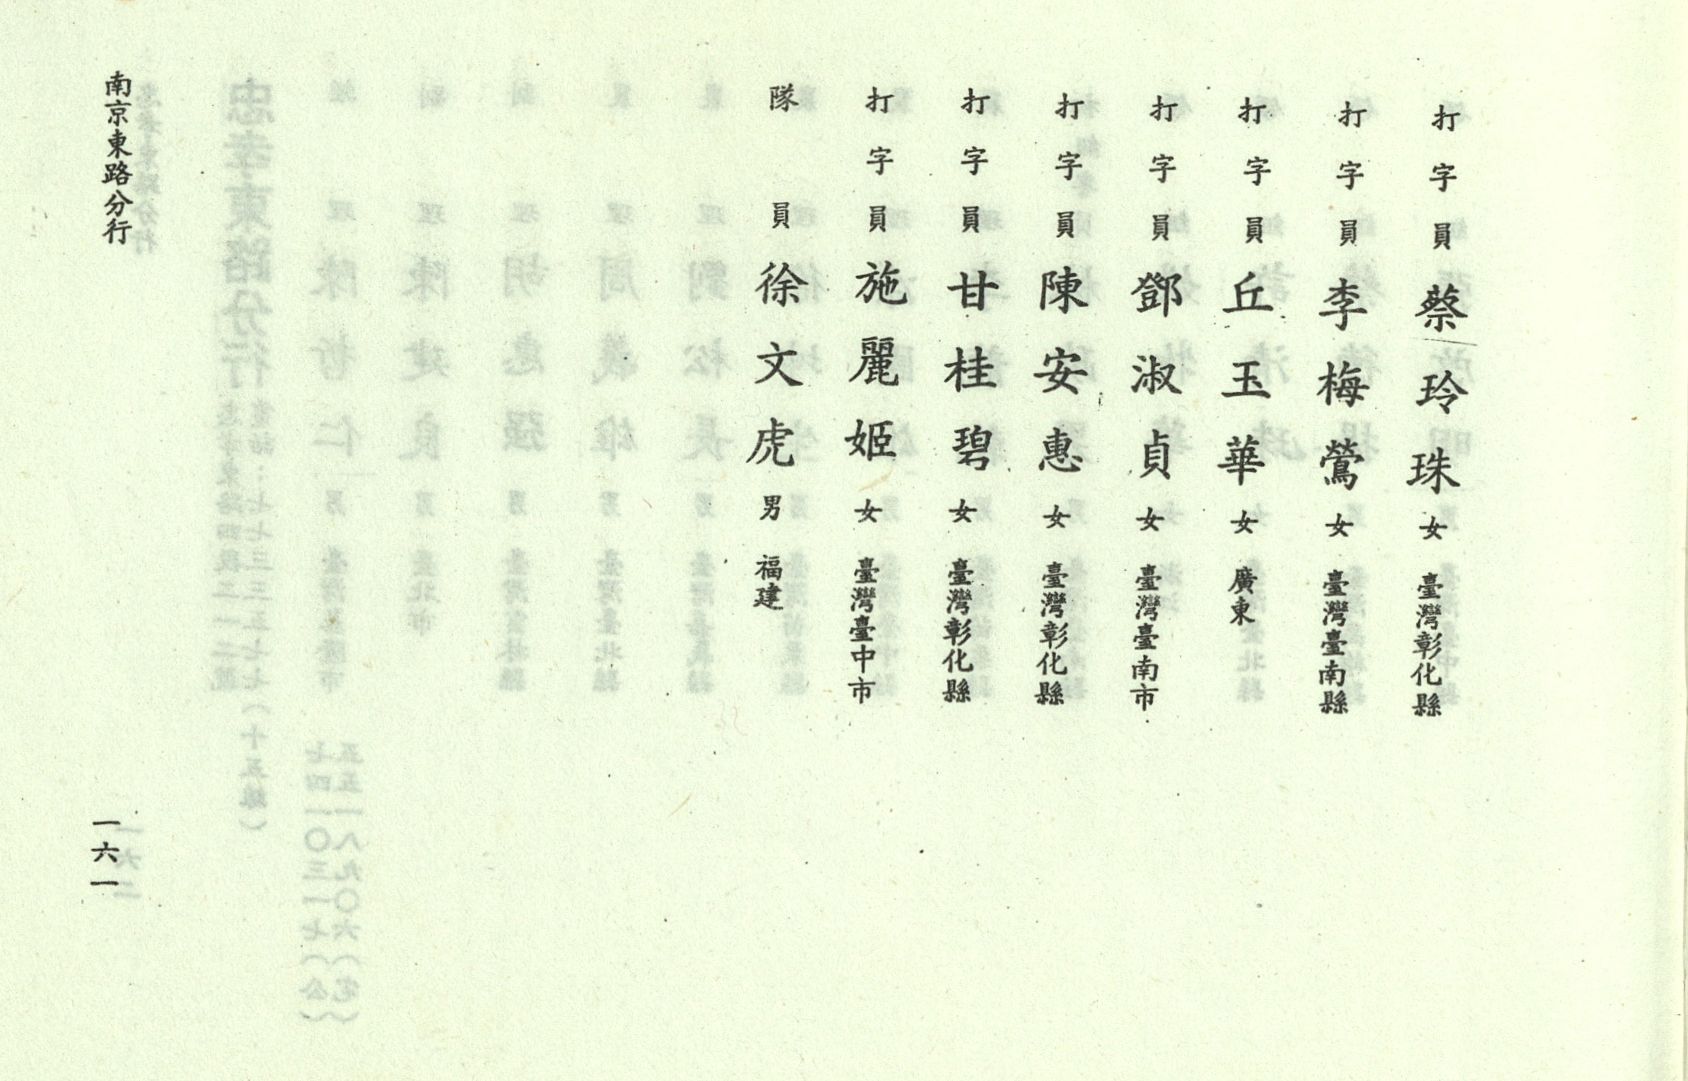 打字員 蔡玲珠 女 臺灣彰化縣
打字員 李梅鶯 女 臺灣臺南縣
打字員 丘玉華 女 廣東
打字員 鄧淑貞 女 臺灣臺南市
打字員 陳安惠 女 臺灣彰化縣
打字員 甘桂碧 女 臺灣彰化縣
打字員 施麗姬 女 臺灣臺中市
隊員 徐文虎 男 福建
南京東路分行
一六一